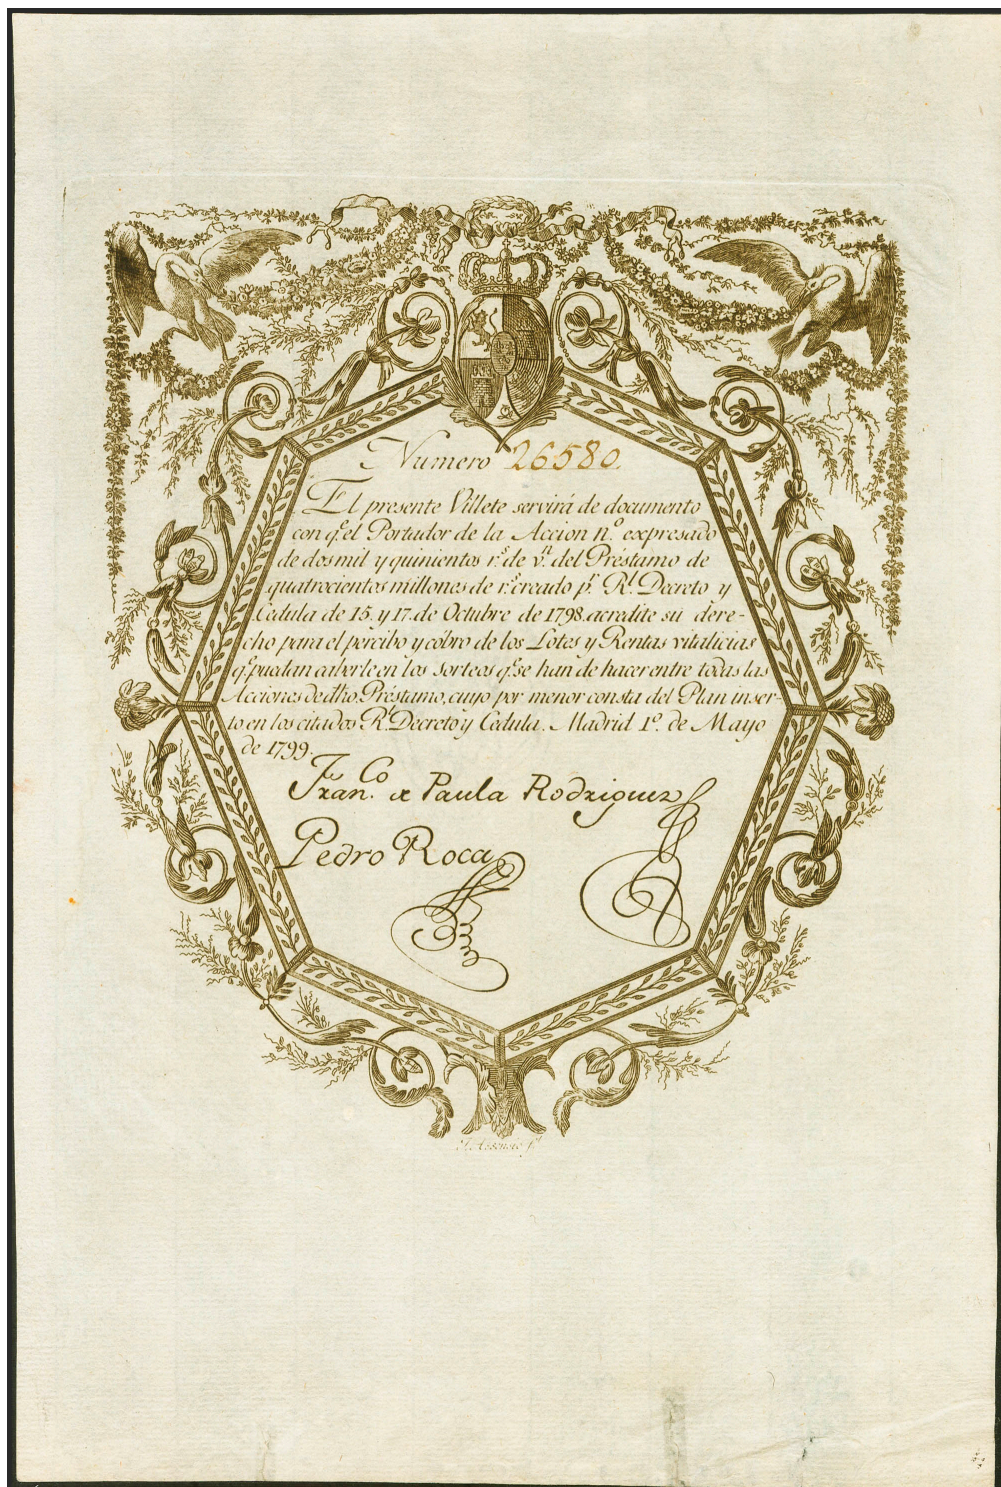 Numero 26580.
El presente Villete servirá de documento
con qe. el Portador de la Accion nº. expresado
de dos mil y quinientos rs. de vn. del Préstamo de
quatrocientos millones de rs. creado pr. Rl. Decreto y
Cedula de 15. y 17. de Octubre de 1798. acredite su dere-
cho para el percibo y cóbro de los Lotes y Rentas vitalicias
qe. puedan caberle en los sorteos qe. se han de hacer entre todas las
Acciones de dho. Préstamo, cuyo por menor consta del Plan inser-
to en los citados Rl. Decreto y Cedula. Madrid 1º. de Mayo
de 1799.
Franco. de Paula Rodriguez
Pedro Roca
J. Assensio ft.